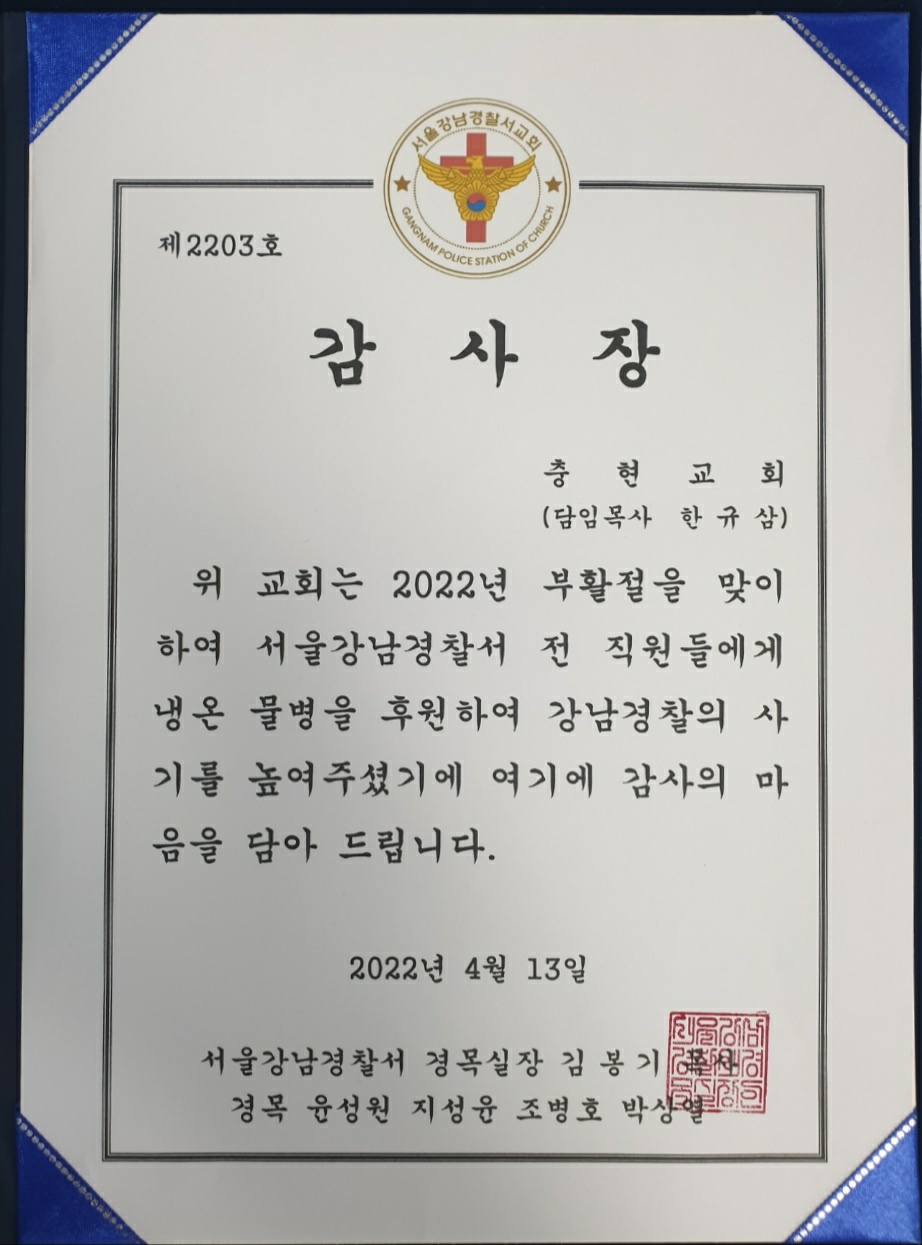 서울강남경찰서교회
GANGNAM POLICE STATION OF CHURCH
제2203호
감 사 장
충 현 교 회
(담임목사 한 규 삼)
위 교회는 2022년 부활절을 맞이
하여 서울강남경찰서 전 직원들에게
냉온 물병을 후원하여 강남경찰의 사
기를 높여주셨기에 여기에 감사의 마
음을 담아 드립니다.
2022년 4월 13일
서울강남경찰서 경목실장 김 봉 기 목사
경목 윤성원 지성윤 조병호 박상열